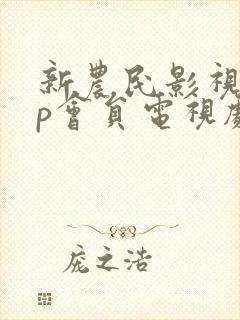 新農民影視
p會員電視劇
庞之浩